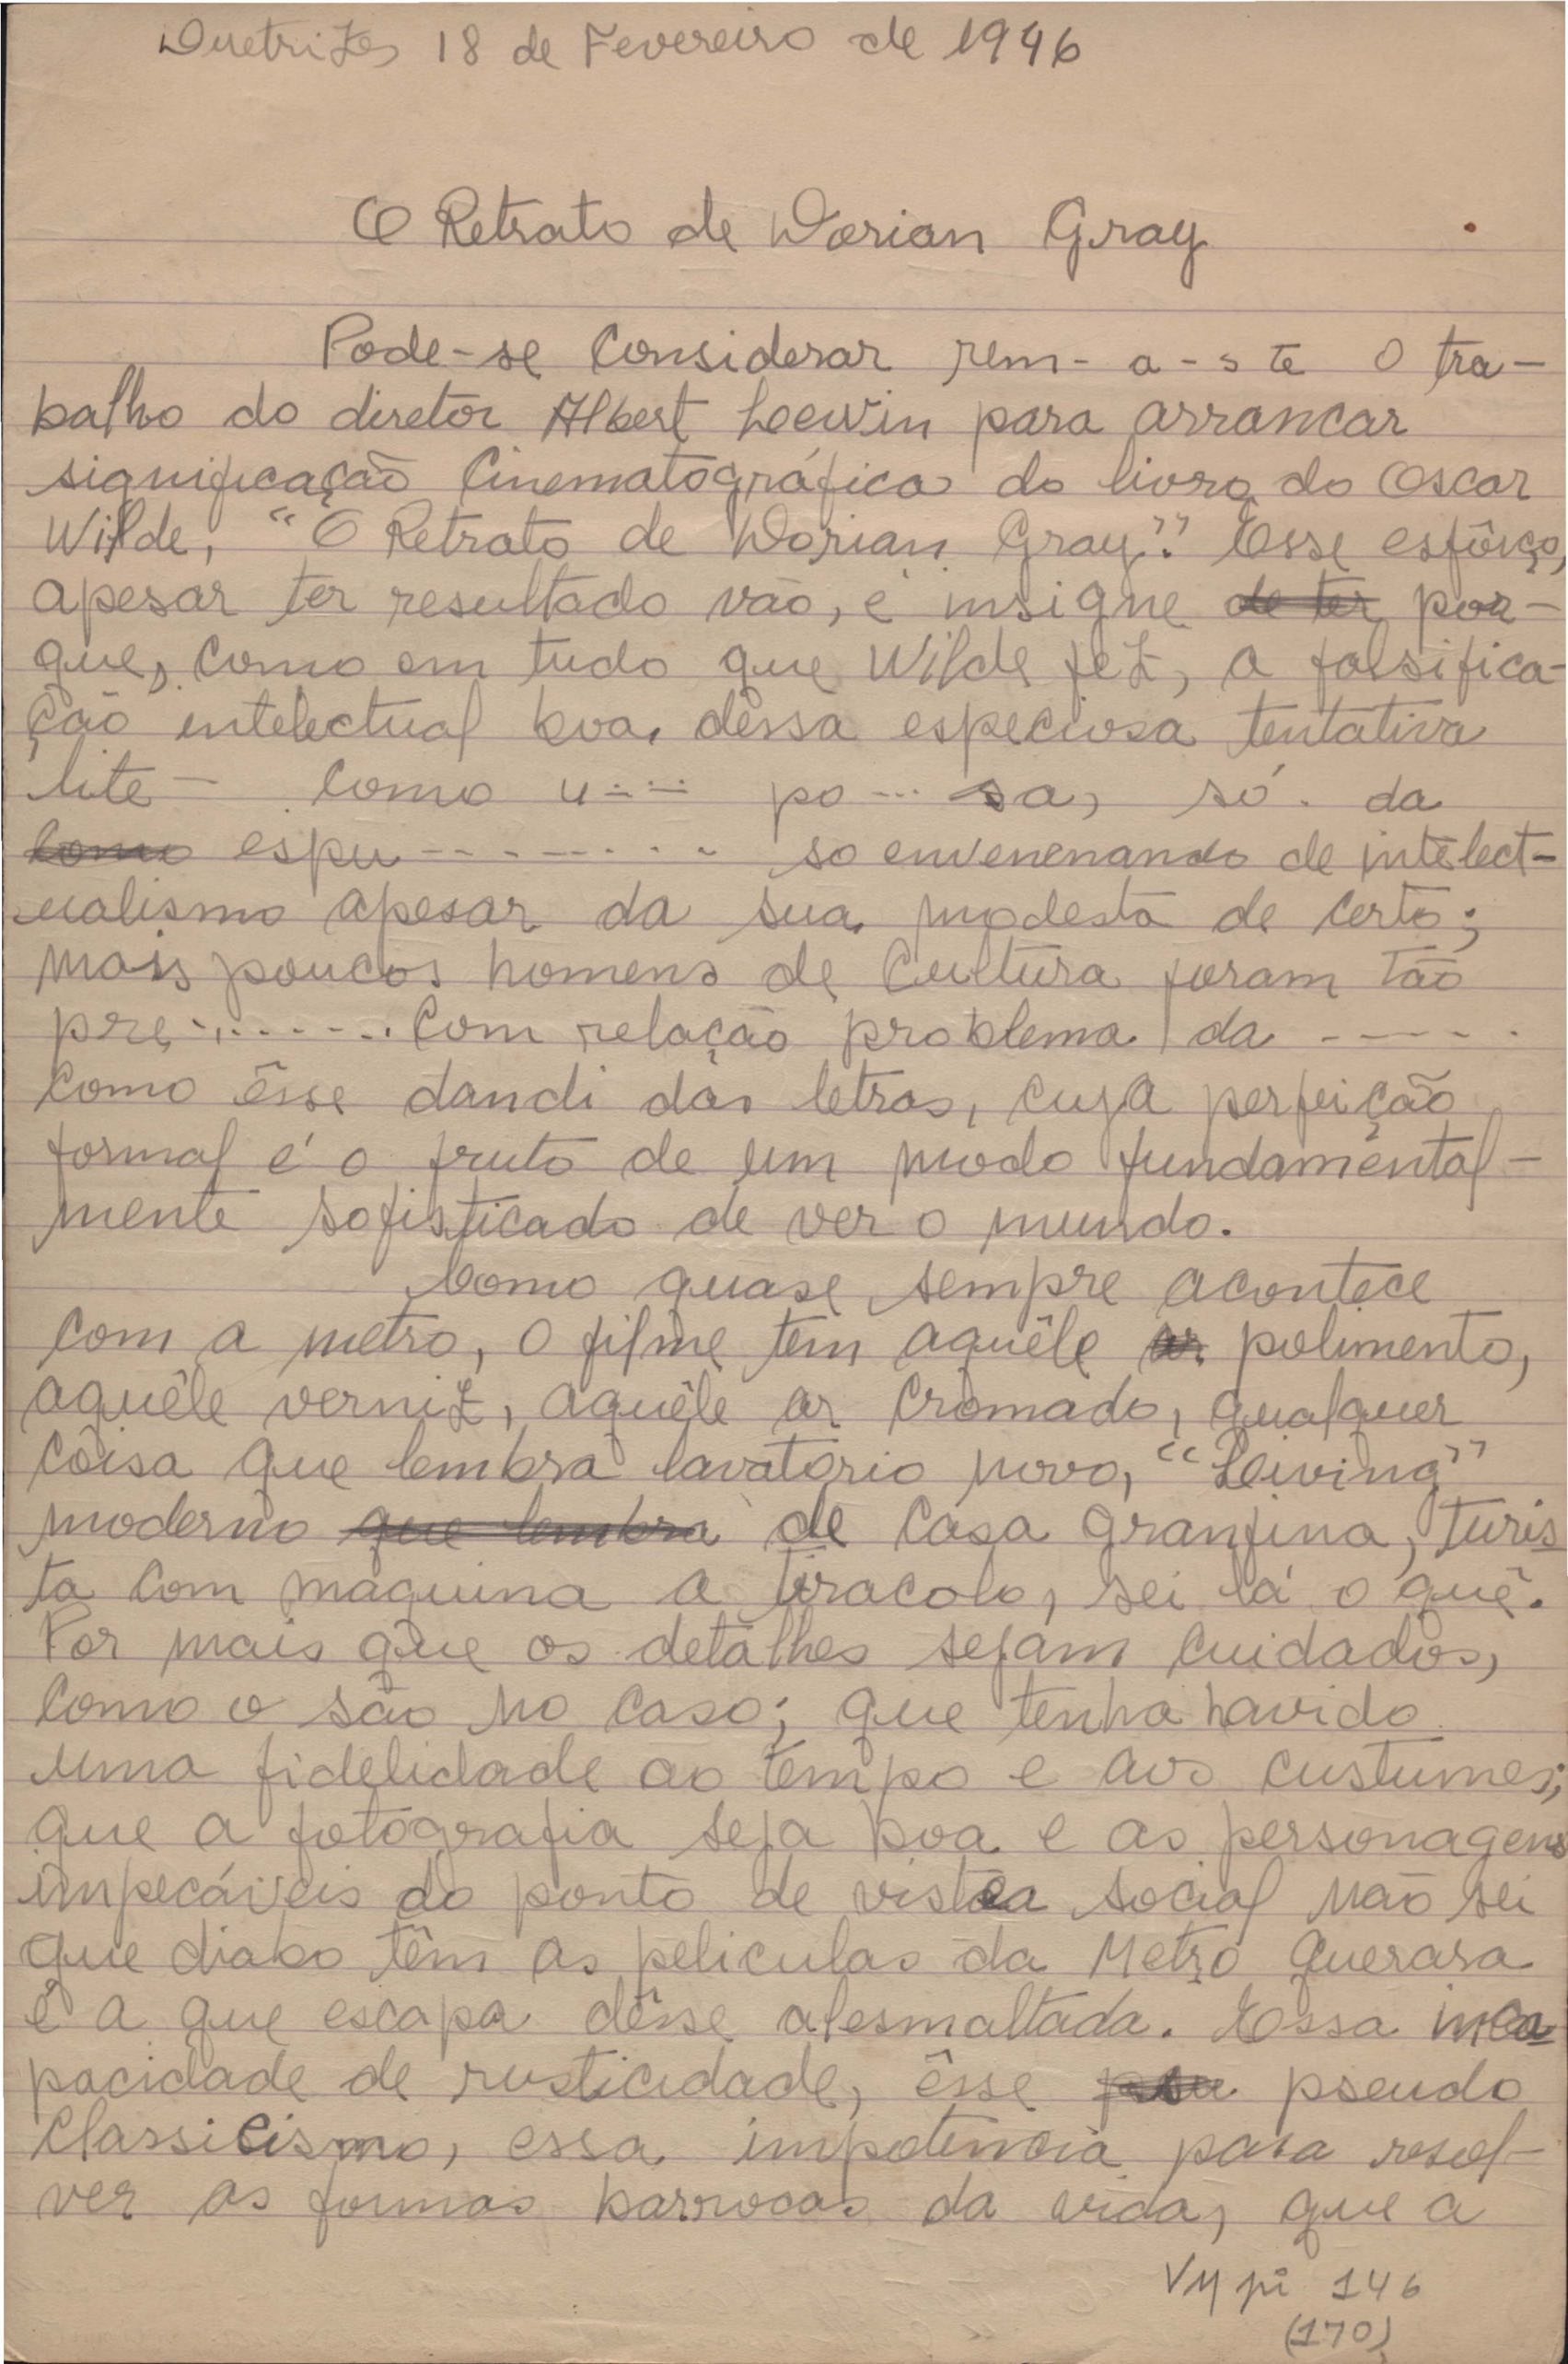 Duetrizes 18 de Fevereiro de 1946
O Retrato de Dorian Gray
Pode-se Considerar rem- a - s te o tra-
balho do diretor Albert Loewin para arrancar
significação Cinematográfica do livro do Oscar
Wilde, "O Retrato de Dorian Gray". Esse esfôrço,
apesar ter resultado vão, é insigne de ter por-
que, como em tudo que Wilde fez, a falsifica-
ção intelectual boa, dessa especiosa tentativa
lite- como u--- po ... sa, só. da
como espu-------- so envenenando de intelect-
ualismo apesar da sua modesta de certo;
mais poucos homens de Cultura foram tão
pre........ Com relação problema da -----
como êsse dandi das letras, cuja perfeição
formal é o fruto de um modo fundamental-
mente sofisticado de ver o mundo.
Como quase sempre acontece
com a metro, o filme tem aquêle ar polimento,
aquêle verniz, aquêle ar Cromado, qualquer
côisa que lembra lavatório novo, "Leiving"
moderno que lembra de Casa granfina, turis
ta Com máquina a tiracolo, sei lá o quê.
Por mais que os detalhes sejam cuidados,
como o são no caso; que tenha havido
uma fidelidade ao tempo e aos custumes;
que a fotografia seja boa e as personagens
impecáveis do ponto de vista social não sei
que diabo têm as peliculas da Metro querara
é a que escapa dêsse alesmaltada. Essa inca
pacidade de rusticidade, êsse pseu pseudo
Classicismo, essa impotencia para resol-
ver as formas barrocas da vida, que a
VM pi 146
(170)